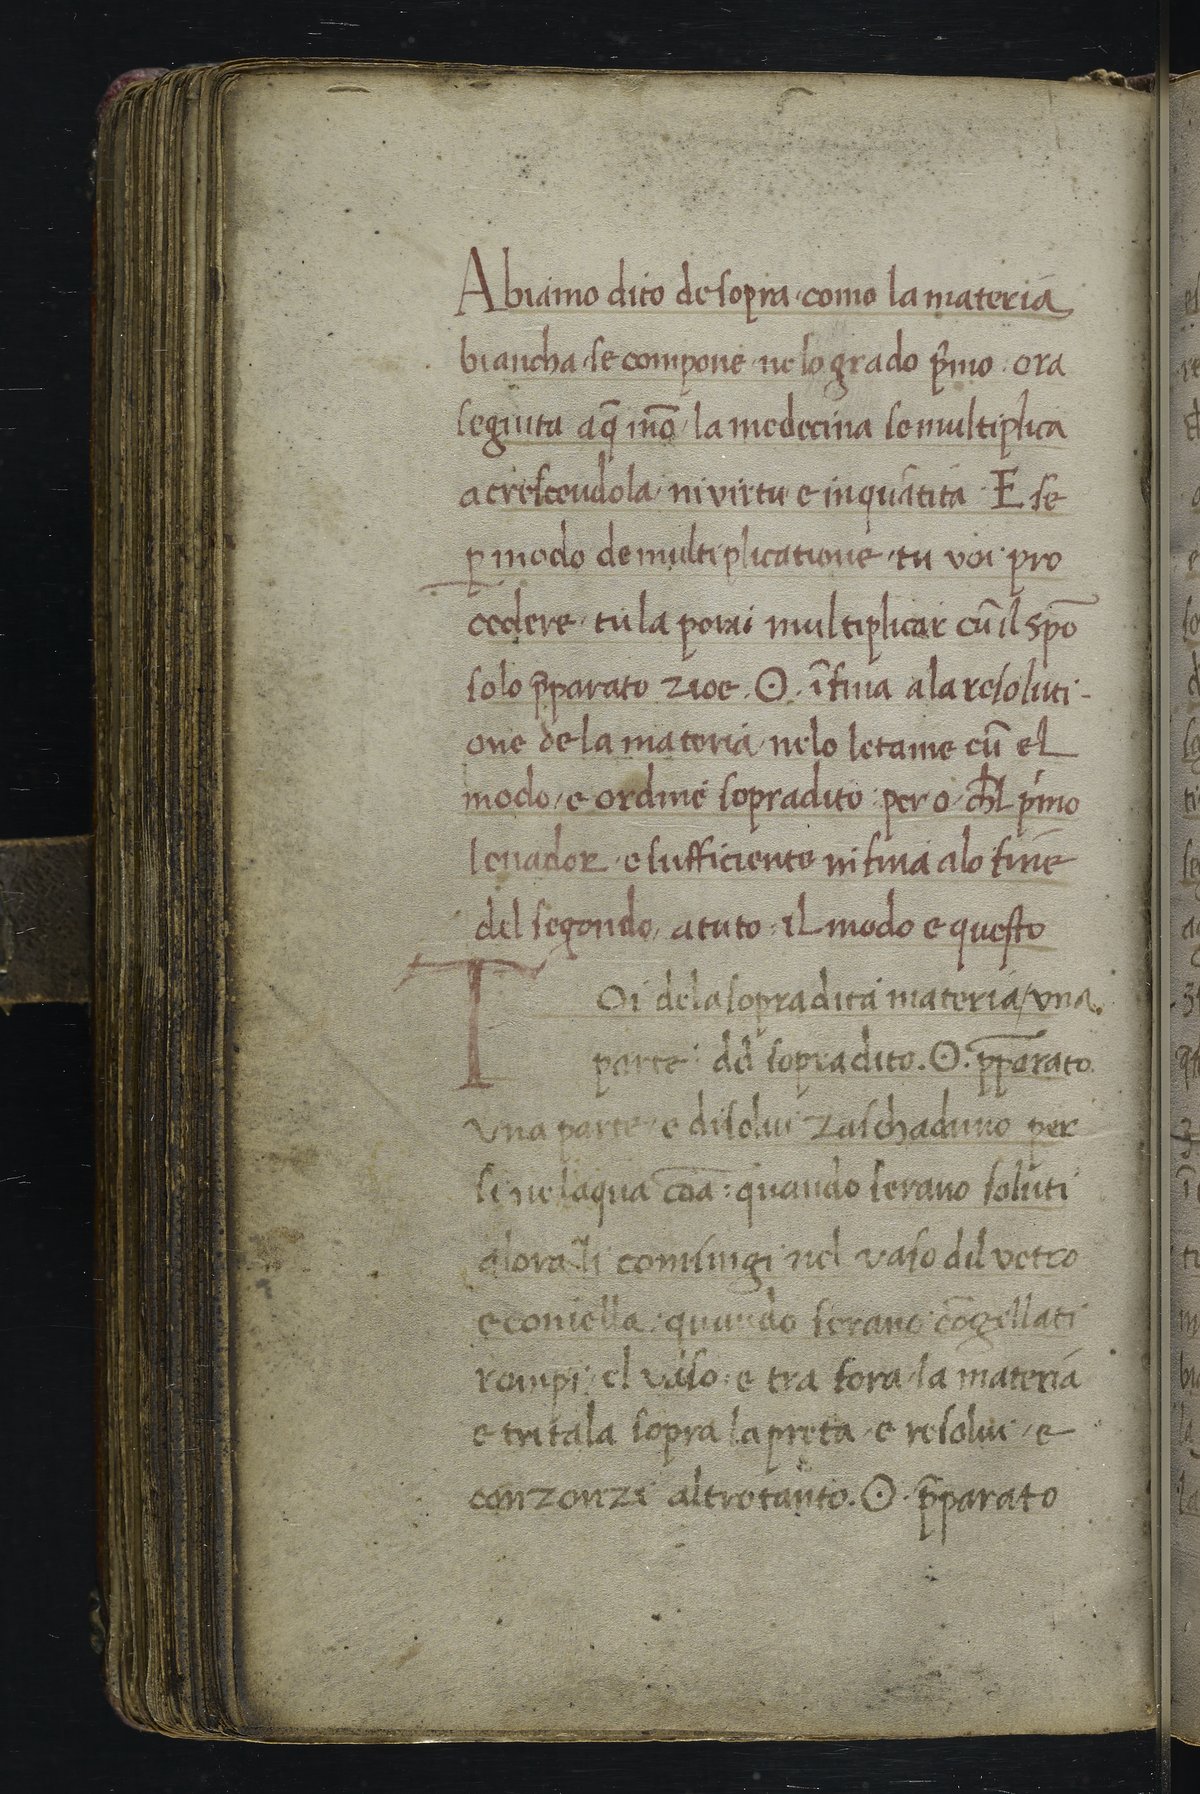 Abiamo dito de sopra · como la materia
biancha · se compone · ne lo grado p̄mo · ora
seguita aq̄ mō · la medecina se multiplica
acrescendola · ni virtu e in quātita · E se
p̱ modo de multiplicatione · tu voi pro
cedere · tu la porai multiplicar cū il spō
solo p̄parato zioe · ☉ · īfina a la resoluti-
one de la materia · nelo letame cū el
modo · e ordine sopradito · pero · ch̄l p̄mo
leuador · e sufficiente ni fina alo fine
del segondo · a tuto : il modo e questo
TOi de la sopradita materia / vna
parte · del sopradito . ☉ . p̄parato
vna parte · e disolui zaschaduno per
si ne laqua cōa : quando serano soluti
alora li comisungi nel vaso dil vetro
e coniella : quando serano cōgellati
rompi · el vaso · e tra fora · la materia
e tritala sopra la preta · e resolui · e
conzonzi altrotanto . ☉ . p̄parato